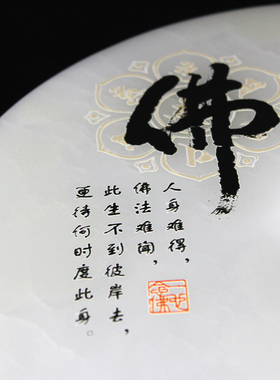 佛
人身难得，
佛法难闻，
此生不到彼岸去，
更待何时度此身。